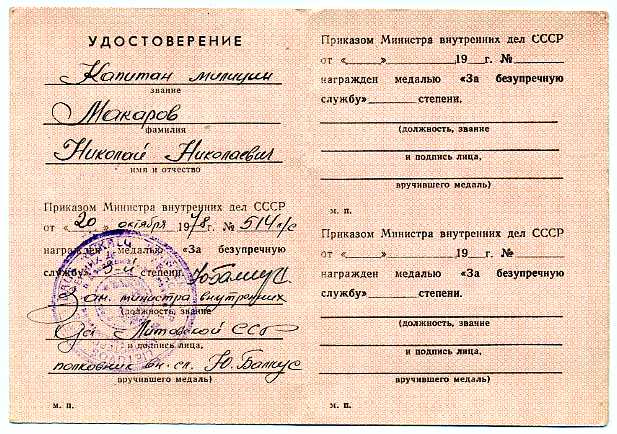 УДОСТОВЕРЕНИЕ
Капитан милиции
звание
Макаров
фамилия
Николай Николаевич
имя и отчество
Приказом Министра внутренних дел СССР
от «20» октября 1978г. № 514 л/с
награжден медалью «За безупречную
службу» 3-й степени.
Зам. министра внутренних
(должность, звание
дел Литовской ССР
и подпись лица,
полковник вн. сл. Ю. Балтус
вручившего медаль)
м. п.
Приказом Министра внутренних дел СССР
от «____»__________19__г. №____
награжден медалью «За безупречную
службу»________степени.
(должность, звание
и подпись лица,
вручившего медаль)
м. п.
Приказом Министра внутренних дел СССР
от «____»__________19__г. №
награжден медалью «За безупречную
службу»________степени.
(должность, звание
и подпись лица,
вручившего медаль)
м. п.